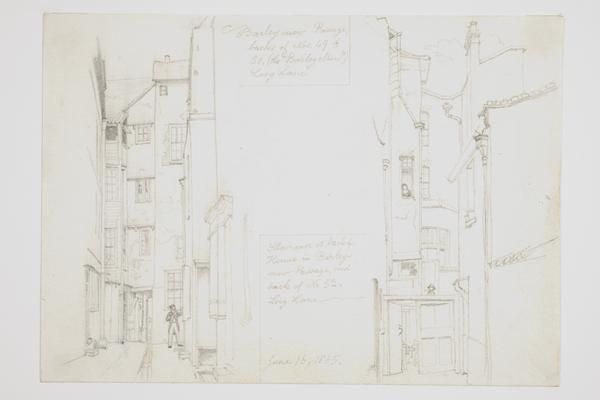 Barley mow Passage
backs of Nos. 49 &
50, (the "Barley Mow")
Long Lane
at back of
House in Barley
mow Passage, and
back of No 52.
Long Lane
June 15, 1865.